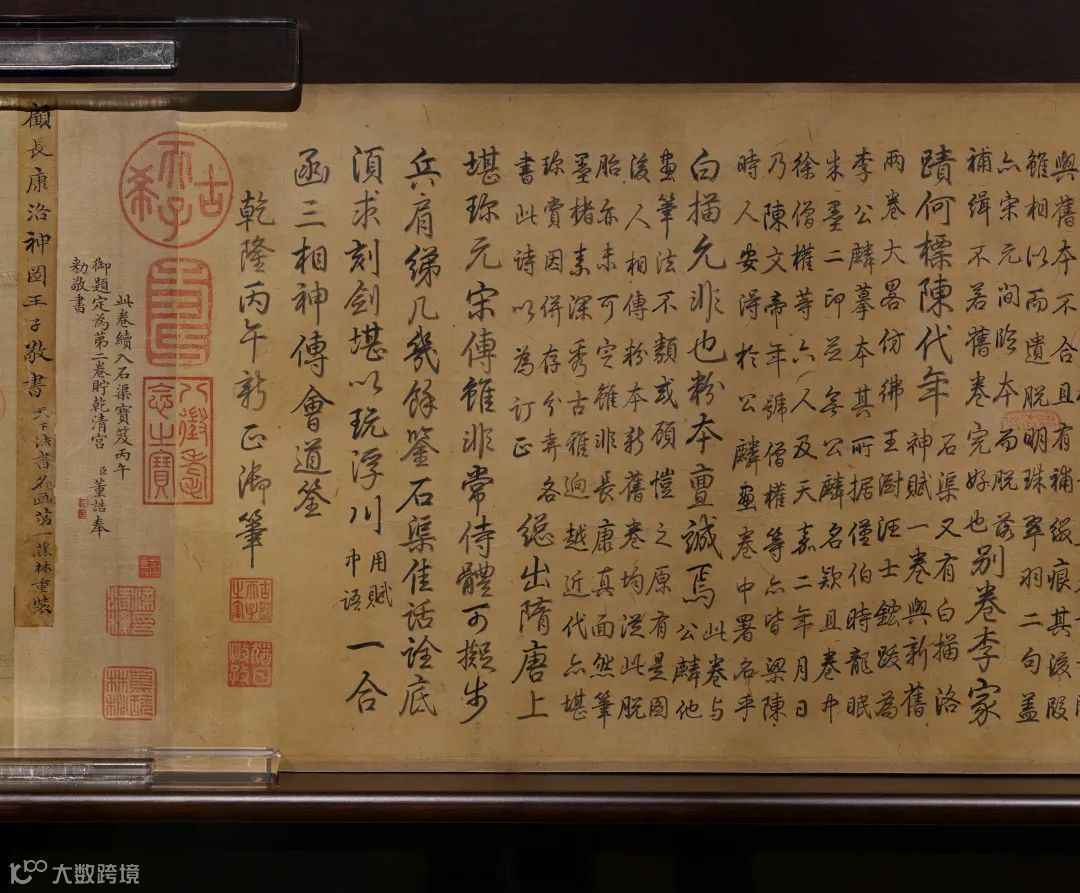 與舊本不合且有補綴痕其後段
雖相以而遺脫明珠翠羽二句蓋
亦宋元間臨本而脫落
補緝不若舊卷完好也別卷李家
蹟何標陳代年石渠又有白描洛
神賦一卷與新舊
兩卷大畧仿彿王澍汪士鋐跋為
李公麟摹本其所據僧伯時龍眠
朱墨二印並無公麟名欵且卷中
徐僧權等六人及天嘉二年月日
乃陳文帝年號僧權等亦皆梁陳
時人安得於公麟畫卷中署名乎
白描允非也粉本亶誠焉此卷與
公麟他
畫筆法不類或顧愷之原有是圖
後人相傳粉本新舊卷均從此脫
胎亦未可定雖非長康真面然筆
墨楮素深秀古雅迥越近代亦堪
珍賞因併存分弆各
書此詩以為訂正總出隋唐上
堪珍元宋傳雖非常侍體可擬步
兵肩綈几幾餘鑒石渠佳話詮底
須求刻劍堪以玩浮川用賦
中語一合
函三相神傳會道筌
乾隆丙午新正御筆
古希天子
八徵耄念之寶
此卷續入石渠寶笈丙午
御題定為第二卷貯乾清宮臣董誥奉
勅敬書
顧長康洛神圖王子敬書天下法書名畫第一蕉林重裝
大数跨境